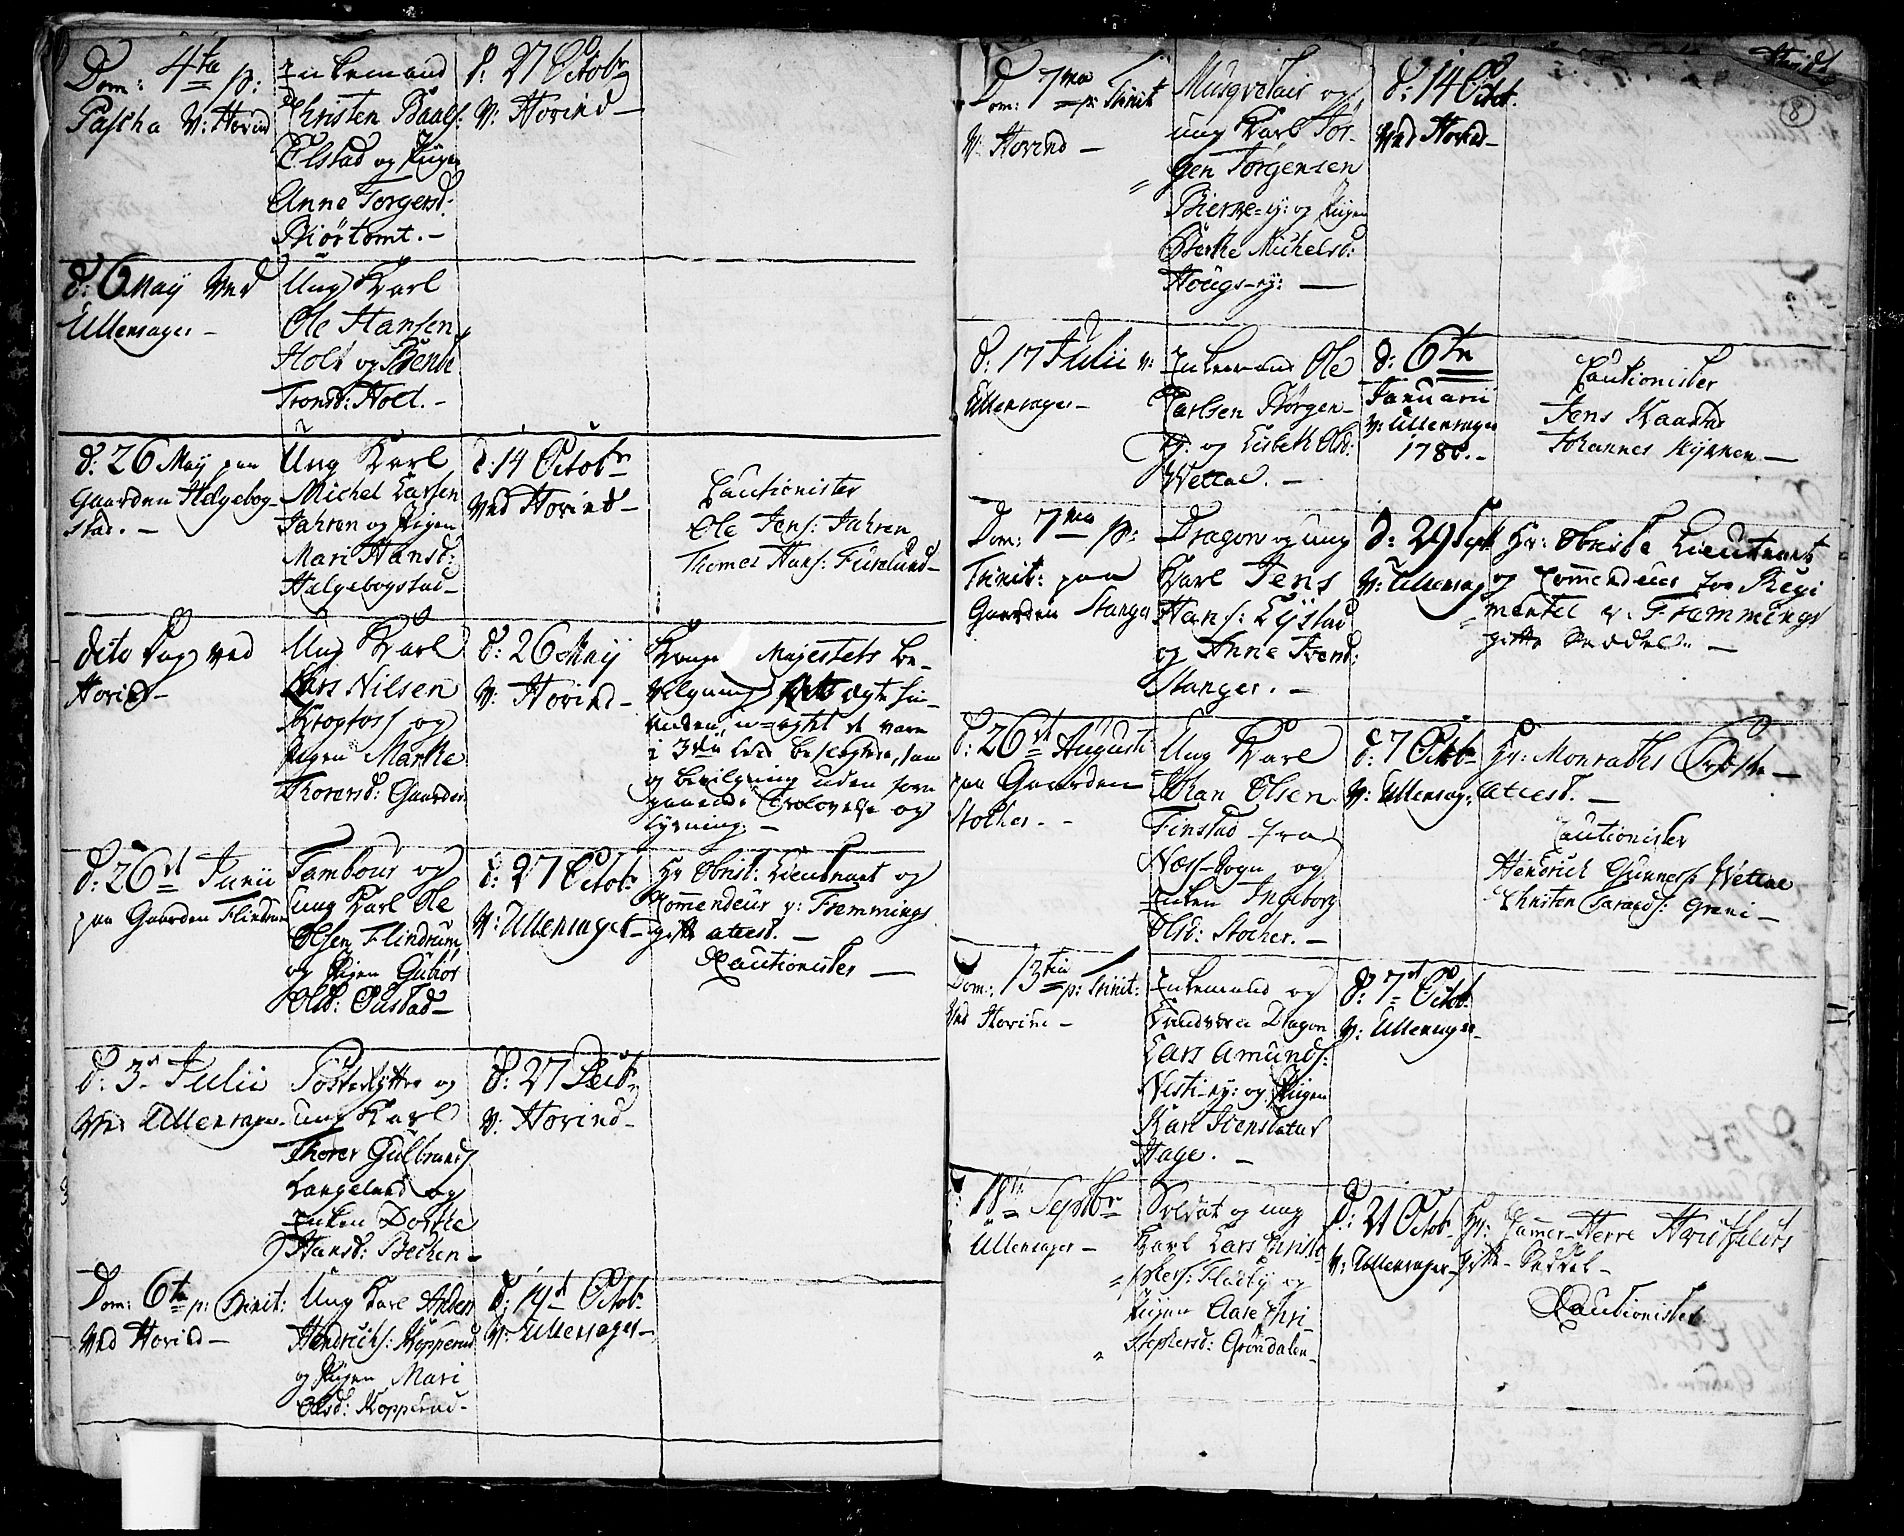 Dom: 4ta p:
Pascha V: Hovind
Enkemand
Christen Paals:
Elstad og Pigen
Anne Torgersd:
Biørtomt. –
d: 27 Octobr
V: Hovind –
d: 6 May ved
Ullensager –
Ung Karl
Ole Hansen
Holt og Berthe
Tronsd: Holt. –
d: 26 May paa
Gaarden Helgebog-
stad. –
Ung Karl
Michel Larsen
Jahren og Pigen
Mari Hansd:
Helgebogstad –
d: 14 Octobr
ved Hovind –
Cautionister
Ole Jens: Jahren
Thomes Hans: Furulund –
dito Dag ved
Hovind –
Ung Karl
Lars Nilsen
Krogfos og
Pigen Marthe
Thorersd: Gaarder
d: 26 May
V: Hovind –
Kongl Majestets be-
vilgning
i 3die Led beslægtede, sam
og bevilgning uden fore
gaaende Trolovelse og
Lysning. –
d: 26de Junii
paa Gaarden Flindrum
Tambour og
ung Karl Ole
Olsen Flindrum
og Pigen Gubior
Olsd: Oustad –
d: 27 Octobr
V: Ullensager –
Hr Obrist: Lieutnant og
Commendeur v: Fremmings
gifte attest. –
Cautionister –
d: 3de Julii
ved Ullensager –
og
ung Karl
Thorer Gulbrands:
Langelund og
Enken Dorthe
Hansd: Bechen –
d: 27 Decbr
V: Hovind –
Dom: 6te p: Trinit:
ved Hovind –
Ung Karl Anders
Hendrichs: Kopperud
og Pigen Mari
Olsd: Kopperud –
d: 19d Octobr
V: Ullensager –
8
Dom: 7ma p: Trinit
V: Hovind –
Musqvetair og
ung Karl Jør-
gen Jørgensen
Bierke-ey: og Pigen
Berthe Michelsd:
Hougs-ey: –
d: 14 Octr.
ved Hovind –
d: 17 Julii v:
Ullensager –
Enkemand Ole
Carlsen Borgen-
ey: og Lisbeth Olsd:
Wettal. –
d: 6te
Januarii
V: Ullensager
1780. –
Cautionister
Jens Kaastad
Johannes Kynnen –
Dom: 7ma p:
Trinit: paa
Gaarden Stanger
Dragon og ung
Karl Jens
Hans: Lystad
og Anne Svend:
Stanger. –
d: 29 Sept
V: Ullensag
Hr: Obriste Lieutnant
og Commendeur for Regi
mentet v. Fremmings
gifte Seddel. –
d: 26st Augusti
paa Gaarden
Stocher. –
Ung Karl
Johan Olsen
Finstad fra
Næs-Sogn og
Enken Ingeborg
Olsd: Stocher. –
d: 7 Octobr
V: Ullensag:
Hr: Monraths Geistl. –
attest. –
Cautionister
Hendrich Gunners: Wettal
Christen Taralds: Greni –
Dom: 13tia p: Trinit:
ved Hovind –
Enkemand og
Landværn Dragon
Lars Amunds:
Nesti-ey: og Pigen
Kari Svensdatter
Hage. –
d: 7d Octobr
V: Ullensager –
18de Septbr
Ullensager –
Soldat og ung
Karl Lars Christo-
phers: Fladby og
Pigen Aase Chri
stophersd: Grøndalen –
d: 21 Octobr
V: Ullensager –
Hr: Cammer-Herre
gifte-Seddel –
Cautionister